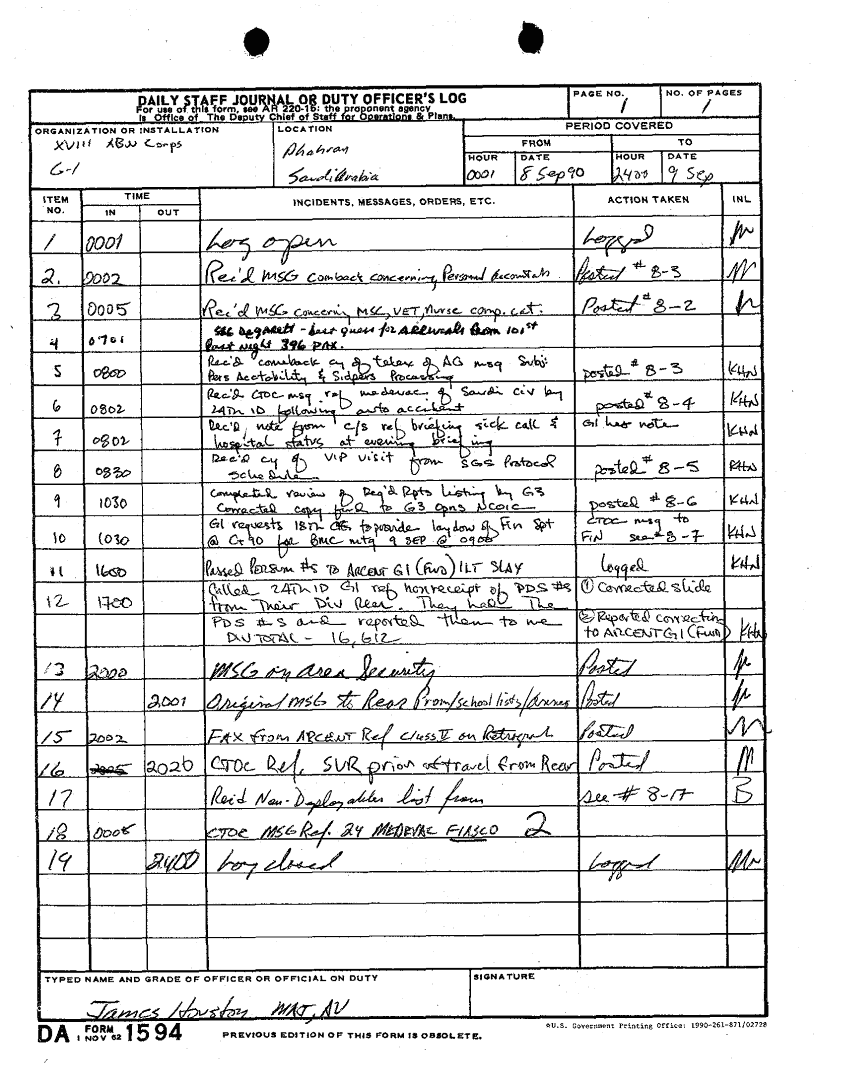 DAILY STAFF JOURNAL OR DUTY OFFICER'S LOG
For use of this form, see AR 220-15; the proponent agency
is Office of The Deputy Chief of Staff for Operations & Plans.
PAGE NO.
1
NO. OF PAGES
1
ORGANIZATION OR INSTALLATION
XVIII ABN Corps
G-1
LOCATION
Dhahran
Saudi Arabia
PERIOD COVERED
FROM TO
HOUR DATE HOUR DATE
0001 8 Sep 90 2400 9 Sep
ITEM NO. TIME IN OUT INCIDENTS, MESSAGES, ORDERS, ETC. ACTION TAKEN INL
1 0001 Log open Logged
2. 0002 Rec'd MSG comback concerning, Personnel Posted # 8-3
3 0005 Rec'd MSG concerning MSC, VET, Nurse comp. cat. Posted # 8-2
4 0701 - best guess for ARRIVALS from 101st
last night 396 PAX.
5 0800 Rec'd comeback cy of telex of AG msg Subj: posted # 8-3 KHN
Pers Acctability & Sidpers Processing
6 0802 Rec'd CTOC msg ref medevac of Saudi civ by posted # 8-4 KHN
24TH ID following auto accident
7 0802 Rec'd, note from c/s ref briefing sick call & G1 has note KHN
hospital status at evening briefing
8 0830 Rec'd cy of VIP visit from SGS Protocol posted # 8-5 KHN
Schedule
9 1030 Completed review of Req'd Rpts Listing by G3 posted # 8-6 KHN
Corrected copy fwd to G3 Opns NCOIC
10 1030 G1 requests 18TH to provide laydow of Fin Spt CTOC msg to KHN
@ C+90 for BMC mtg 9 SEP @ 0900 FIN see # 8-7
11 1600 Passed PERSUM #s TO ARCENT G1 (FWD) 1LT SLAY logged KHN
12 1700 Called 24TH ID G1 ref nonreceipt of PDS #s ① Corrected slide
from Their Div Rear. They had The
PDS #s and reported them to me ② Reported correction
DIV TOTAL - 16,612 to ARCENT G1 (FWD) KHN
13 2000 MSG on area Security Posted
14 2001 Original MSG to Rear Prom/school lists/ Posted
15 2002 FAX from ARCENT Ref Class on Posted
16 2005 2020 CTOC Ref. SVR prior to travel from Rear Posted M
17 Rec'd Non-Deployables list from see # 8-17 B
18 0005 CTOC MSG Ref. 24 MEDEVAC FIASCO 2
19 2400 Log closed Logged
TYPED NAME AND GRADE OF OFFICER OR OFFICIAL ON DUTY
James Houston MAJ, AV
SIGNATURE
DA FORM 1 NOV 62 1594
PREVIOUS EDITION OF THIS FORM IS OBSOLETE.
☆U.S. Government Printing Office: 1990-261-871/02728